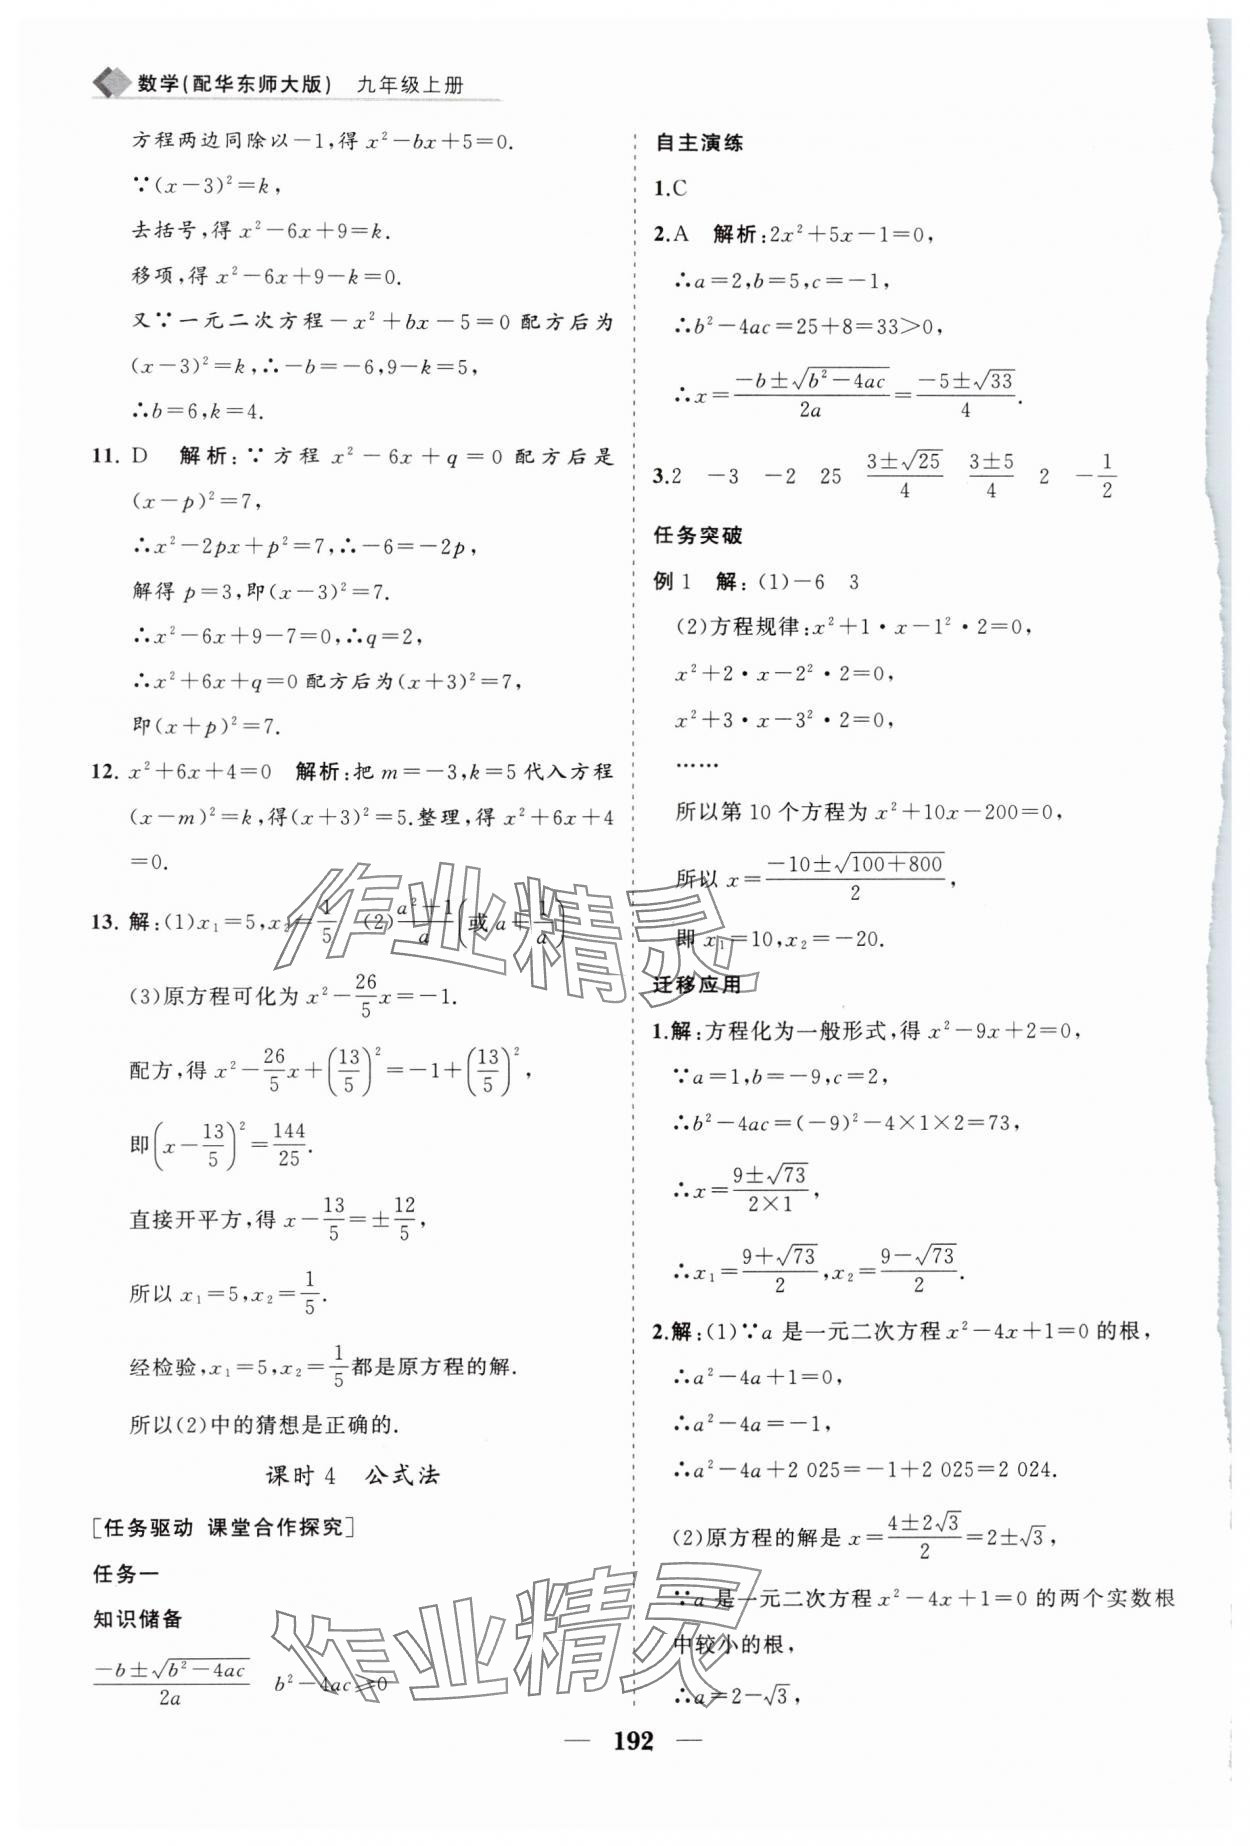 数学(配华东师大版) 九年级上册
方程两边同除以－1,得 x²－bx＋5＝0.
∵(x－3)²＝k,
去括号,得 x²－6x＋9＝k.
移项,得 x²－6x＋9－k＝0.
又∵一元二次方程－x²＋bx－5＝0 配方后为
(x－3)²＝k,∴－b＝－6,9－k＝5,
∴b＝6,k＝4.
11. D 解析:∵方程 x²－6x＋q＝0 配方后是
(x－p)²＝7,
∴x²－2px＋p²＝7,∴－6＝－2p,
解得 p＝3,即(x－3)²＝7.
∴x²－6x＋9－7＝0,∴q＝2,
∴x²＋6x＋q＝0 配方后为(x＋3)²＝7,
即(x＋p)²＝7.
12. x²＋6x＋4＝0 解析:把 m＝－3,k＝5 代入方程
(x－m)²＝k,得(x＋3)²＝5.整理,得 x²＋6x＋4
＝0.
13. 解:(1)x₁＝5,x₂＝1/5 (2)(a²＋1)/a(或 a＋1/a)
(3)原方程可化为 x²－26/5 x＝－1.
配方,得 x²－26/5 x＋(13/5)²＝－1＋(13/5)²,
即(x－13/5)²＝144/25.
直接开平方,得 x－13/5＝±12/5,
所以 x₁＝5,x₂＝1/5.
经检验,x₁＝5,x₂＝1/5都是原方程的解.
所以(2)中的猜想是正确的.
课时 4 公式法
[任务驱动 课堂合作探究]
任务一
知识储备
(－b±√(b²－4ac))/2a b²－4ac≥0
自主演练
1.C
2.A 解析:2x²＋5x－1＝0,
∴a＝2,b＝5,c＝－1,
∴b²－4ac＝25＋8＝33＞0,
∴x＝(－b±√(b²－4ac))/2a＝(－5±√33)/4.
3.2 －3 －2 25 (3±√25)/4 (3±5)/4 2 －1/2
任务突破
例 1 解:(1)－6 3
(2)方程规律:x²＋1·x－1²·2＝0,
x²＋2·x－2²·2＝0,
x²＋3·x－3²·2＝0,
……
所以第 10 个方程为 x²＋10x－200＝0,
所以 x＝(－10±√(100＋800))/2,
即 x₁＝10,x₂＝－20.
迁移应用
1.解:方程化为一般形式,得 x²－9x＋2＝0,
∵a＝1,b＝－9,c＝2,
∴b²－4ac＝(－9)²－4×1×2＝73,
∴x＝(9±√73)/(2×1),
∴x₁＝(9＋√73)/2,x₂＝(9－√73)/2.
2.解:(1)∵a 是一元二次方程 x²－4x＋1＝0 的根,
∴a²－4a＋1＝0,
∴a²－4a＝－1,
∴a²－4a＋2 025＝－1＋2 025＝2 024.
(2)原方程的解是 x＝(4±2√3)/2＝2±√3,
∵a 是一元二次方程 x²－4x＋1＝0 的两个实数根
中较小的根,
∴a＝2－√3,
— 192 —
作业精灵
作业精灵